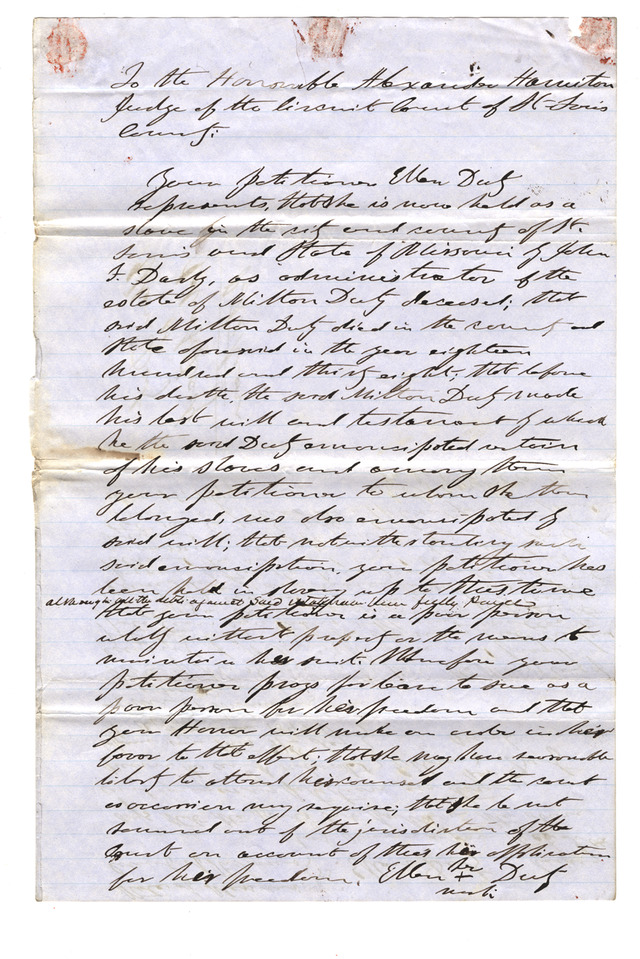 To the Honorable Alexander Hamilton
Judge of the Circuit Court of St Louis
County:
Your petitioner Ellen Duty
represents, that she is now held as a
slave in the city and county of St.
Louis and State of Missouri by John
F. Darby, as administrator of the
estate of Milton Duty deceased; that
said Milton Duty died in the county and
State aforesaid in the year eighteen
hundred and thirty eight; that before
his death, the said Milton Duty made
his last will and testament by which
he the said Duty emancipated certain
of his slaves and among them
your petitioner to whom she then
belonged, was also emancipated by
said will; that notwithstanding such
said emancipation, your petitioner has
been held in slavery up to this time
although all the debts against said estate have been fully paid
that your petitioner is a poor person
wholly without property or the means to
maintain her suit. Wherefore your
petitioner prays for leave to sue as a
poor person for her freedom and that
your Honor will make an order in her
favor to that effect; that she may have reasonable
liberty to attend her counsel and the court
as occasion may require; that she be not
removed out of the jurisdiction of the
Court on account of this her application
for her freedom. Ellen her X Duty
mark